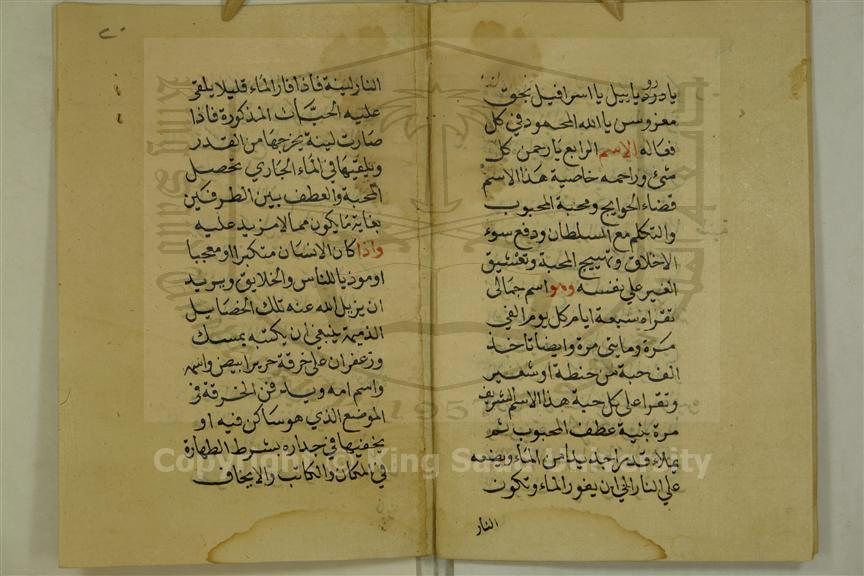 يا دردياييل يا اسرافيل بحق
معزوسن يا الله المحمود في كل
فعاله الاسم الرابع يا رحمن كل
شئ وراحمه خاصية هذا الاسم
قضاء الحوايج ومحبة المحبوب
والتكلم مع السلطان ودفع سوء
الاخلاق وتهييج المحبة وتعشيق
الغير على نفسه وهو اسم جمالى
تقراه سبعة ايام كل يوم الفي
مرة ومايتى مرة وايضا تاخذ
الف حبة من حنطة او شعير
وتقرا على كل حبة هذا الاسم الشريف
مرة بنية عطف المحبوب ثم
يملاء قدرا جديدا من الماء ويضعه
على النار الى ان يفور الماء وتكون
النار
النار لينة فاذا فار الماء قليلا يلقى
عليه الحبات المذكورة فاذا
صارت لينة يخرجها من القدر
ويلقيها في الماء الجاري تحصل
المحبة والعطف بين الطرفين
بغاية ما يكون مما لا مزيد عليه
واذا كان الانسان متكبرا او معجبا
او موذيا للناس والخلايق ويريد
ان يزيل الله عنه تلك الخصايل
الذميمة ينبغي ان يكتبه بمسك
وزعفران على خرقة حرير ابيض واسمه
واسم امه ويدفن الخرقة في
الموضع الذي هو ساكن فيه او
يخفيها في جداره بشرط الطهارة
في المكان والكاتب والايجاف
Copyright © King Saud University
1957